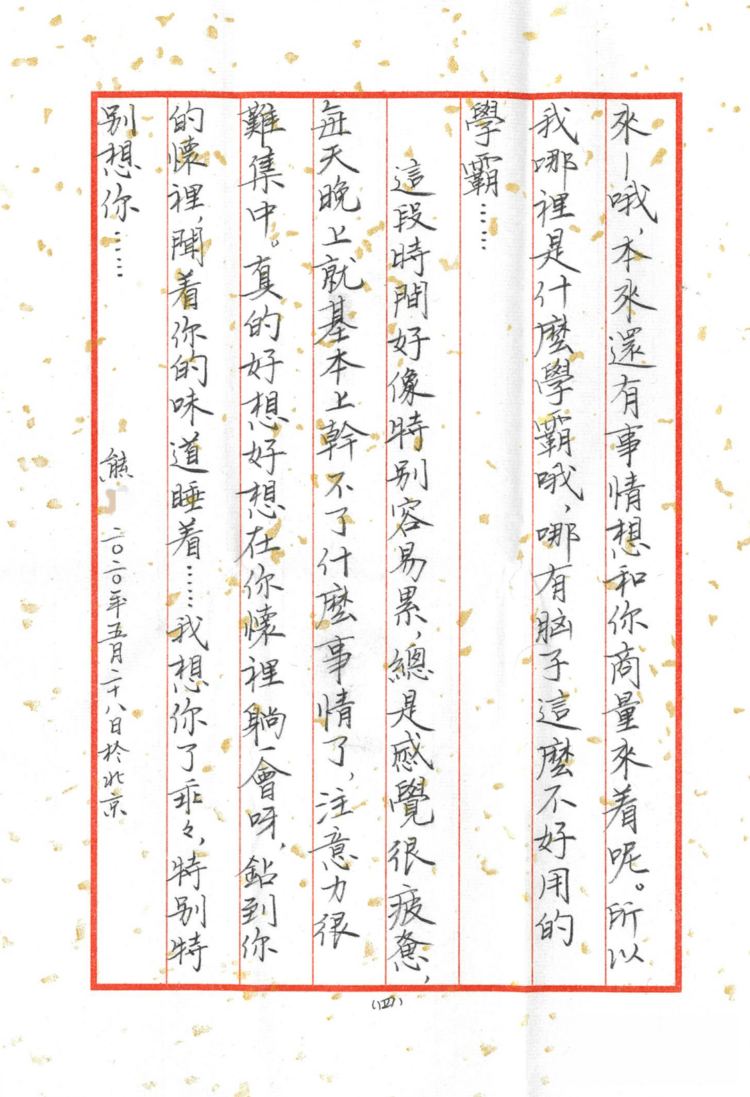 來一哦，本來還有事情想和你商量來着呢。所以
我哪裡是什麼學霸哦，哪有脑子這麼不好用的
學霸……
這段時間好像特别容易累，總是感覺很疲惫，
每天晚上就基本上幹不了什麼事情了，注意力很
難集中。真的好想好想在你懷裡躺一會呀，鉆到你
的懷裡，聞着你的味道睡着……我想你了乖々，特别特
别想你……
熊
二〇二〇年五月二十八日於北京
（四）